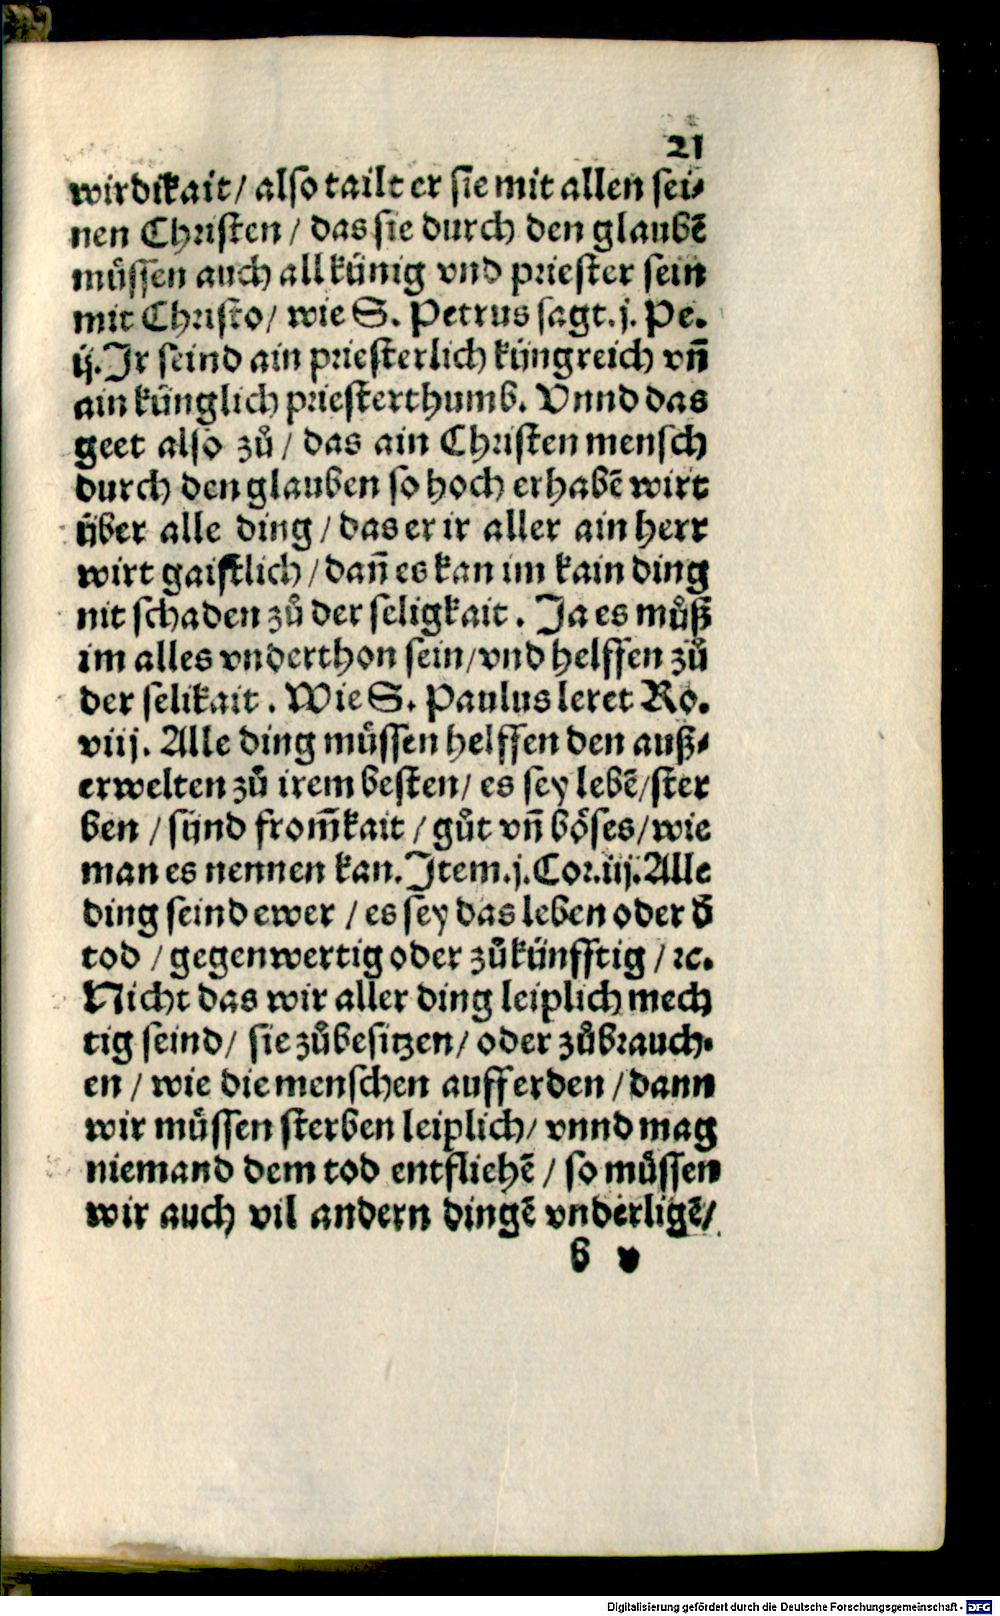 21
wirdikait/ also tailt er sie mit allen sei-
nen Christen / das sie durch den glaubẽ
müssen auch all künig vnd priester sein
mit Christo/ wie S. Petrus sagt. j. Pe.
ij. Ir seind ain priesterlich küngreich vñ
ain künglich priesterthumb. Vnnd das
geet also zů / das ain Christen mensch
durch den glauben so hoch erhabẽ wirt
über alle ding / das er ir aller ain herr
wirt gaistlich / dañ es kan im kain ding
nit schaden zů der seligkait. Ja es můß
im alles vnderthon sein/vnd helffen zů
der selikait. Wie S. Paulus leret Ro.
viij. Alle ding müssen helffen den auß-
erwelten zů irem besten/ es sey lebẽ/ster
ben / sünd from̃kait / gůt vñ böses/wie
man es nennen kan. Item. j. Cor. iij. Alle
ding seind ewer / es sey das leben oder d̃
tod / gegenwertig oder zůkünfftig / ꝛc.
Nicht das wir aller ding leiplich mech
tig seind/ sie zůbesitzen/ oder zůbrauch-
en / wie die menschen auff erden / dann
wir müssen sterben leiplich/ vnnd mag
niemand dem tod entfliehẽ / so müssen
wir auch vil andern dingẽ vnderligẽ/
b v
Digitalisierung gefördert durch die Deutsche Forschungsgemeinschaft - DFG